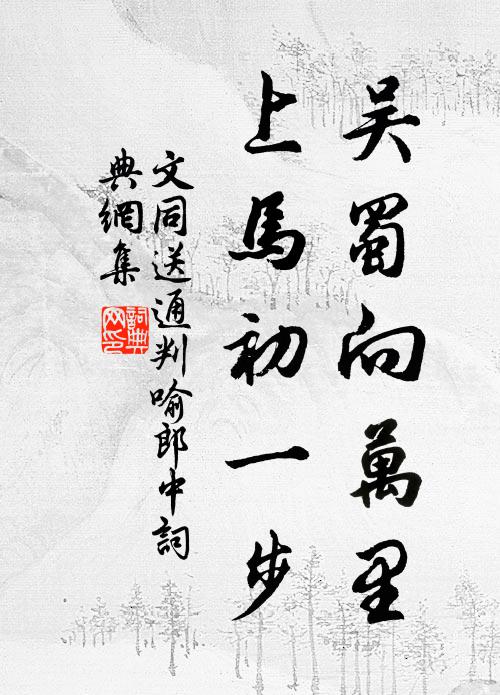 吴蜀向萬里
上馬初一步
文同送通判喻郎中詞
典網集
詞典
网印